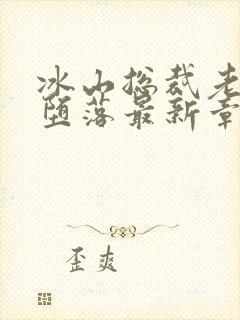 冰山总裁老
堕落最新章
歪爽